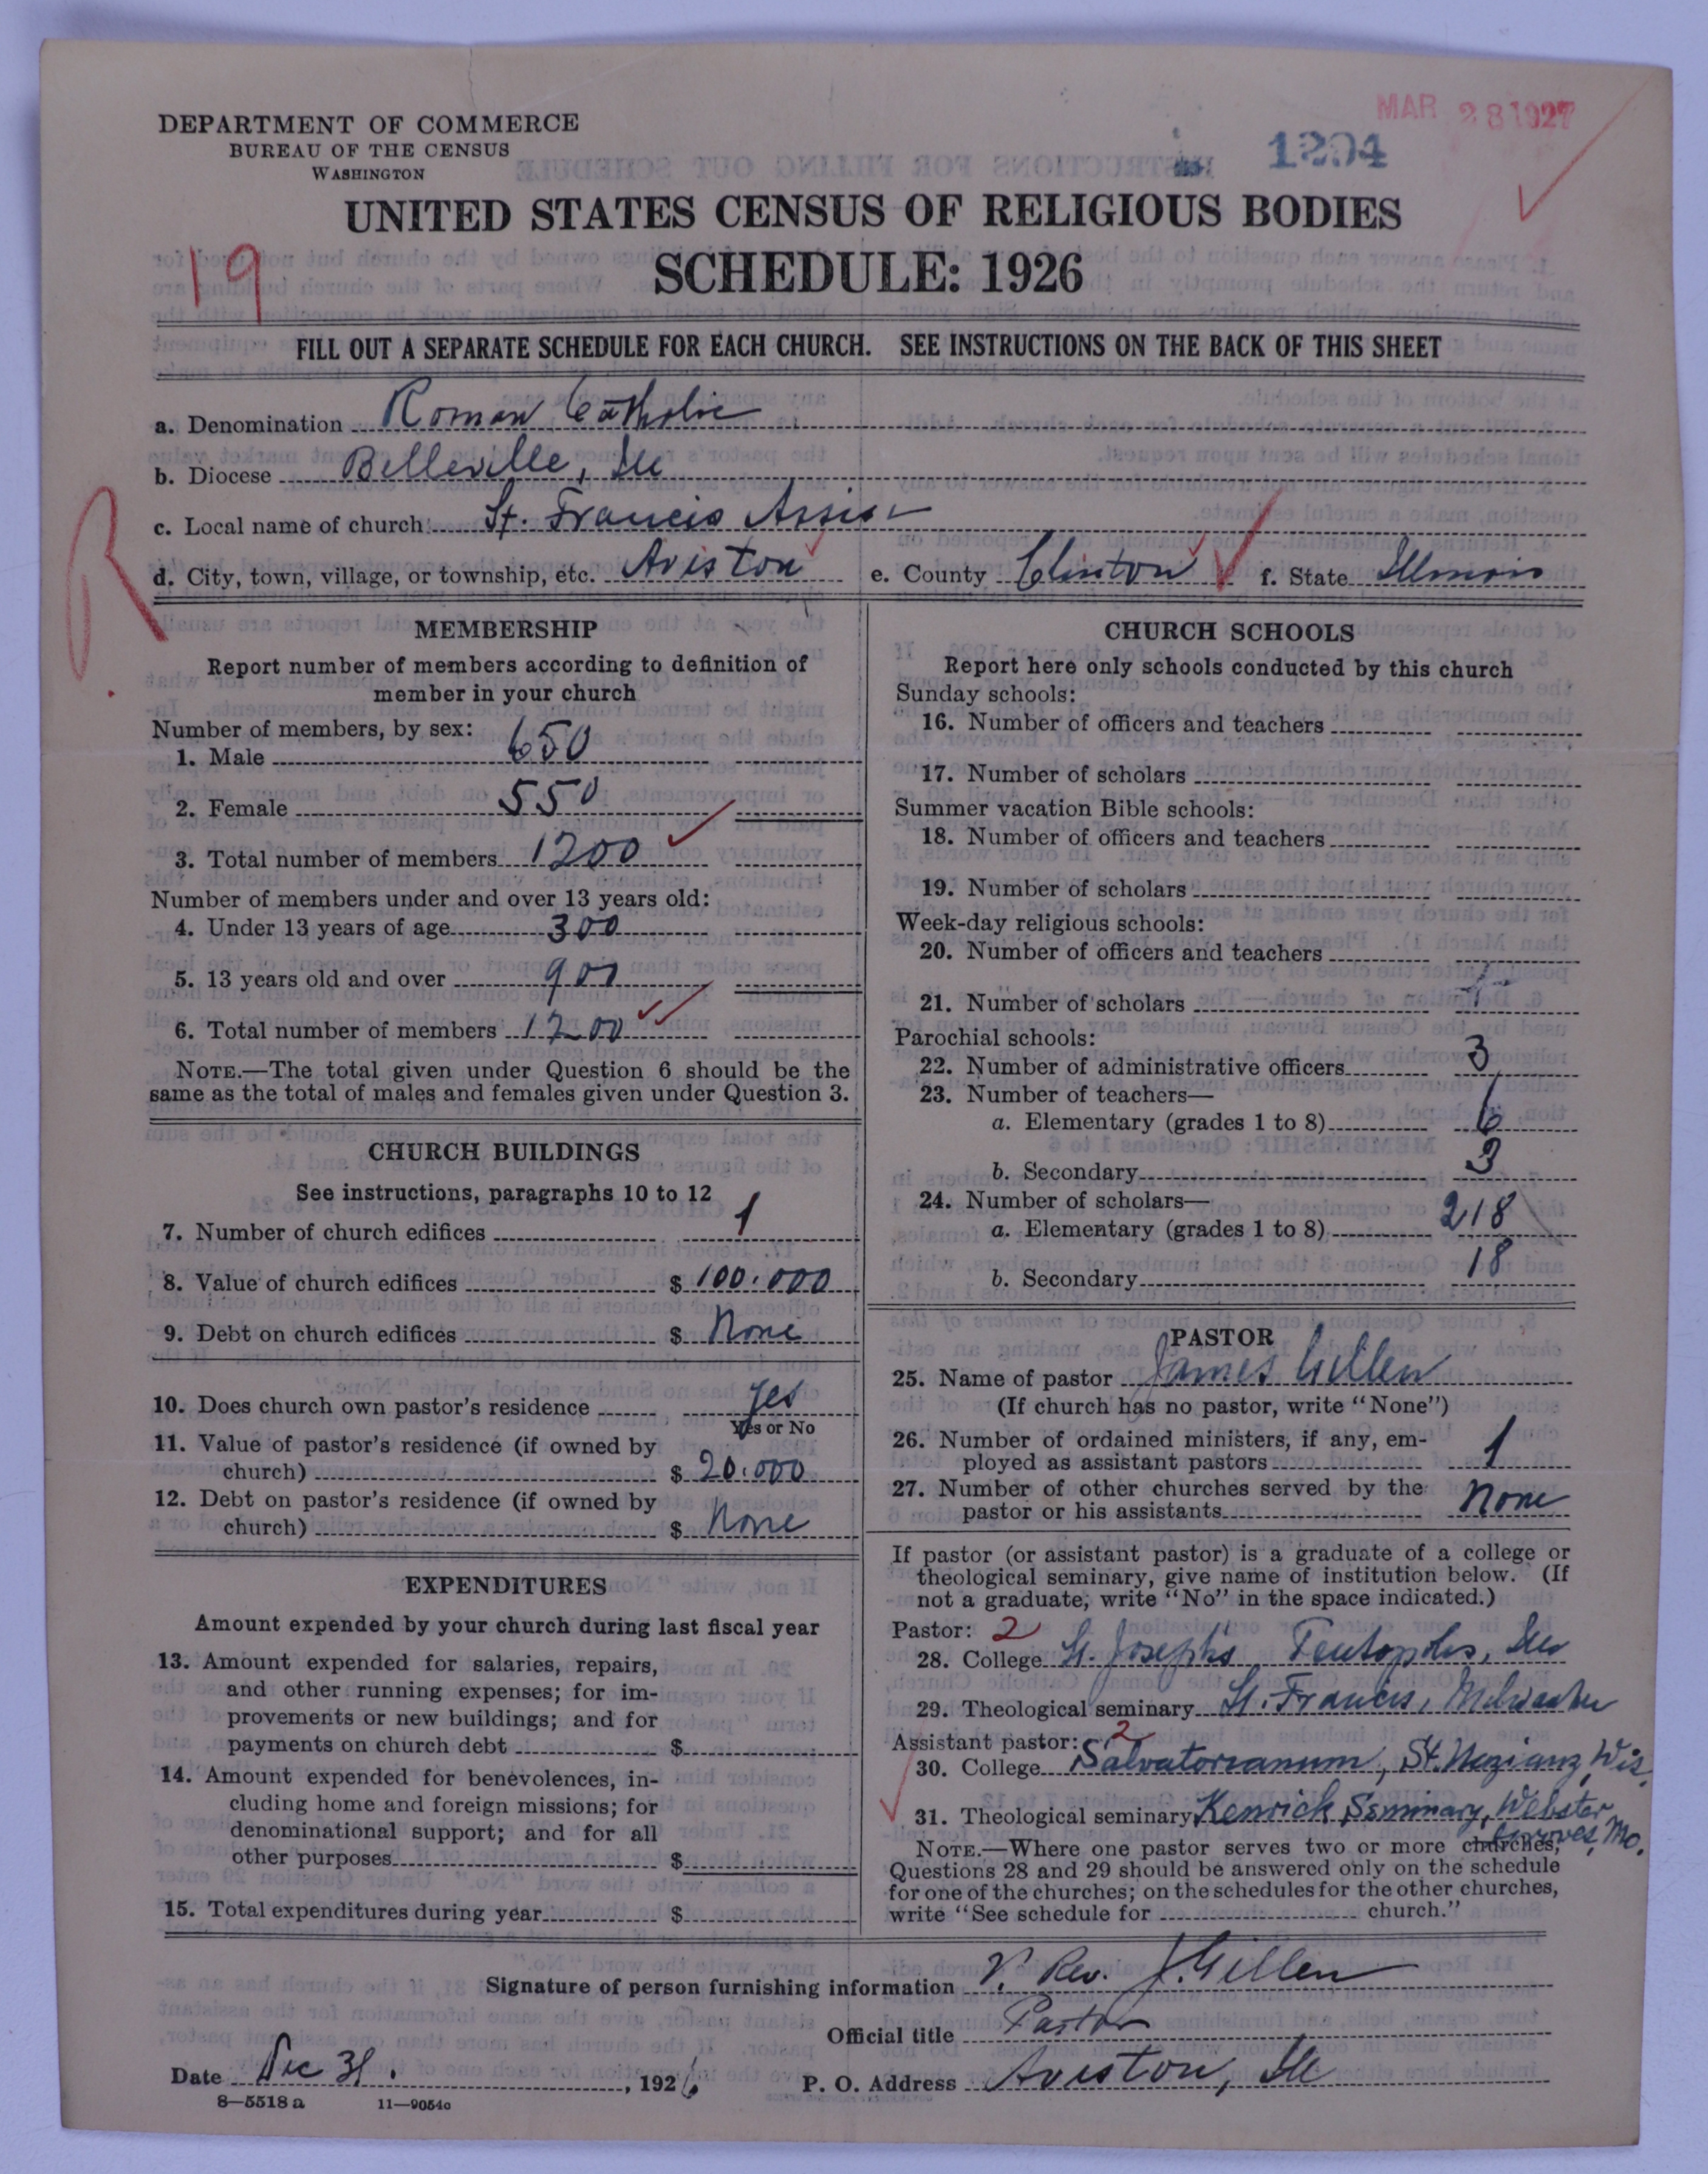 MAR 28 1927
1204
DEPARTMENT OF COMMERCE
BUREAU OF THE CENSUS
WASHINGTON
UNITED STATES CENSUS OF RELIGIOUS BODIES
SCHEDULE: 1926
19
FILL OUT A SEPARATE SCHEDULE FOR EACH CHURCH. SEE INSTRUCTIONS ON THE BACK OF THIS SHEET
a. Denomination Roman Catholic
b. Diocese Belleville, Ill
R
c. Local name of church St. Francis Assisi
d. City, town, village, or township, etc. Aviston e. County Clinton f. State Illinois
MEMBERSHIP
Report number of members according to definition of
member in your church
Number of members, by sex:
1. Male 650
2. Female 550
3. Total number of members 1200
Number of members under and over 13 years old:
4. Under 13 years of age 300
5. 13 years old and over 900
6. Total number of members 1200
NOTE.—The total given under Question 6 should be the
same as the total of males and females given under Question 3.
CHURCH BUILDINGS
See instructions, paragraphs 10 to 12
7. Number of church edifices 1
8. Value of church edifices $ 100.000
9. Debt on church edifices $ None
10. Does church own pastor's residence Yes
Yes or No
11. Value of pastor's residence (if owned by
church) $ 20.000
12. Debt on pastor's residence (if owned by
church) $ None
EXPENDITURES
Amount expended by your church during last fiscal year
13. Amount expended for salaries, repairs,
and other running expenses; for im-
provements or new buildings; and for
payments on church debt $
14. Amount expended for benevolences, in-
cluding home and foreign missions; for
denominational support; and for all
other purposes $
15. Total expenditures during year $
CHURCH SCHOOLS
Report here only schools conducted by this church
Sunday schools:
16. Number of officers and teachers
17. Number of scholars
Summer vacation Bible schools:
18. Number of officers and teachers
19. Number of scholars
Week-day religious schools:
20. Number of officers and teachers
21. Number of scholars
Parochial schools:
22. Number of administrative officers 3
23. Number of teachers—
a. Elementary (grades 1 to 8) 6
b. Secondary 3
24. Number of scholars—
a. Elementary (grades 1 to 8) 218
b. Secondary 18
PASTOR
25. Name of pastor James Gillen
(If church has no pastor, write "None")
26. Number of ordained ministers, if any, em-
ployed as assistant pastors 1
27. Number of other churches served by the
pastor or his assistants None
If pastor (or assistant pastor) is a graduate of a college or
theological seminary, give name of institution below. (If
not a graduate, write "No" in the space indicated.)
Pastor: 2
28. College St. Joseph's Teutopolis, Ills
29. Theological seminary St. Francis, Milwaukee
Assistant pastor: 2
30. College Salvatorianum, St. Nazianz, Wis.
31. Theological seminary Kenrick Seminary, Webster
Groves, Mo.
NOTE.—Where one pastor serves two or more churches,
Questions 28 and 29 should be answered only on the schedule
for one of the churches; on the schedules for the other churches,
write "See schedule for church."
Signature of person furnishing information V. Rev. J. Gillen
Official title Pastor
Date Dec 31. , 1926 P. O. Address Aviston, Ill
8—5518 a 11—9054c